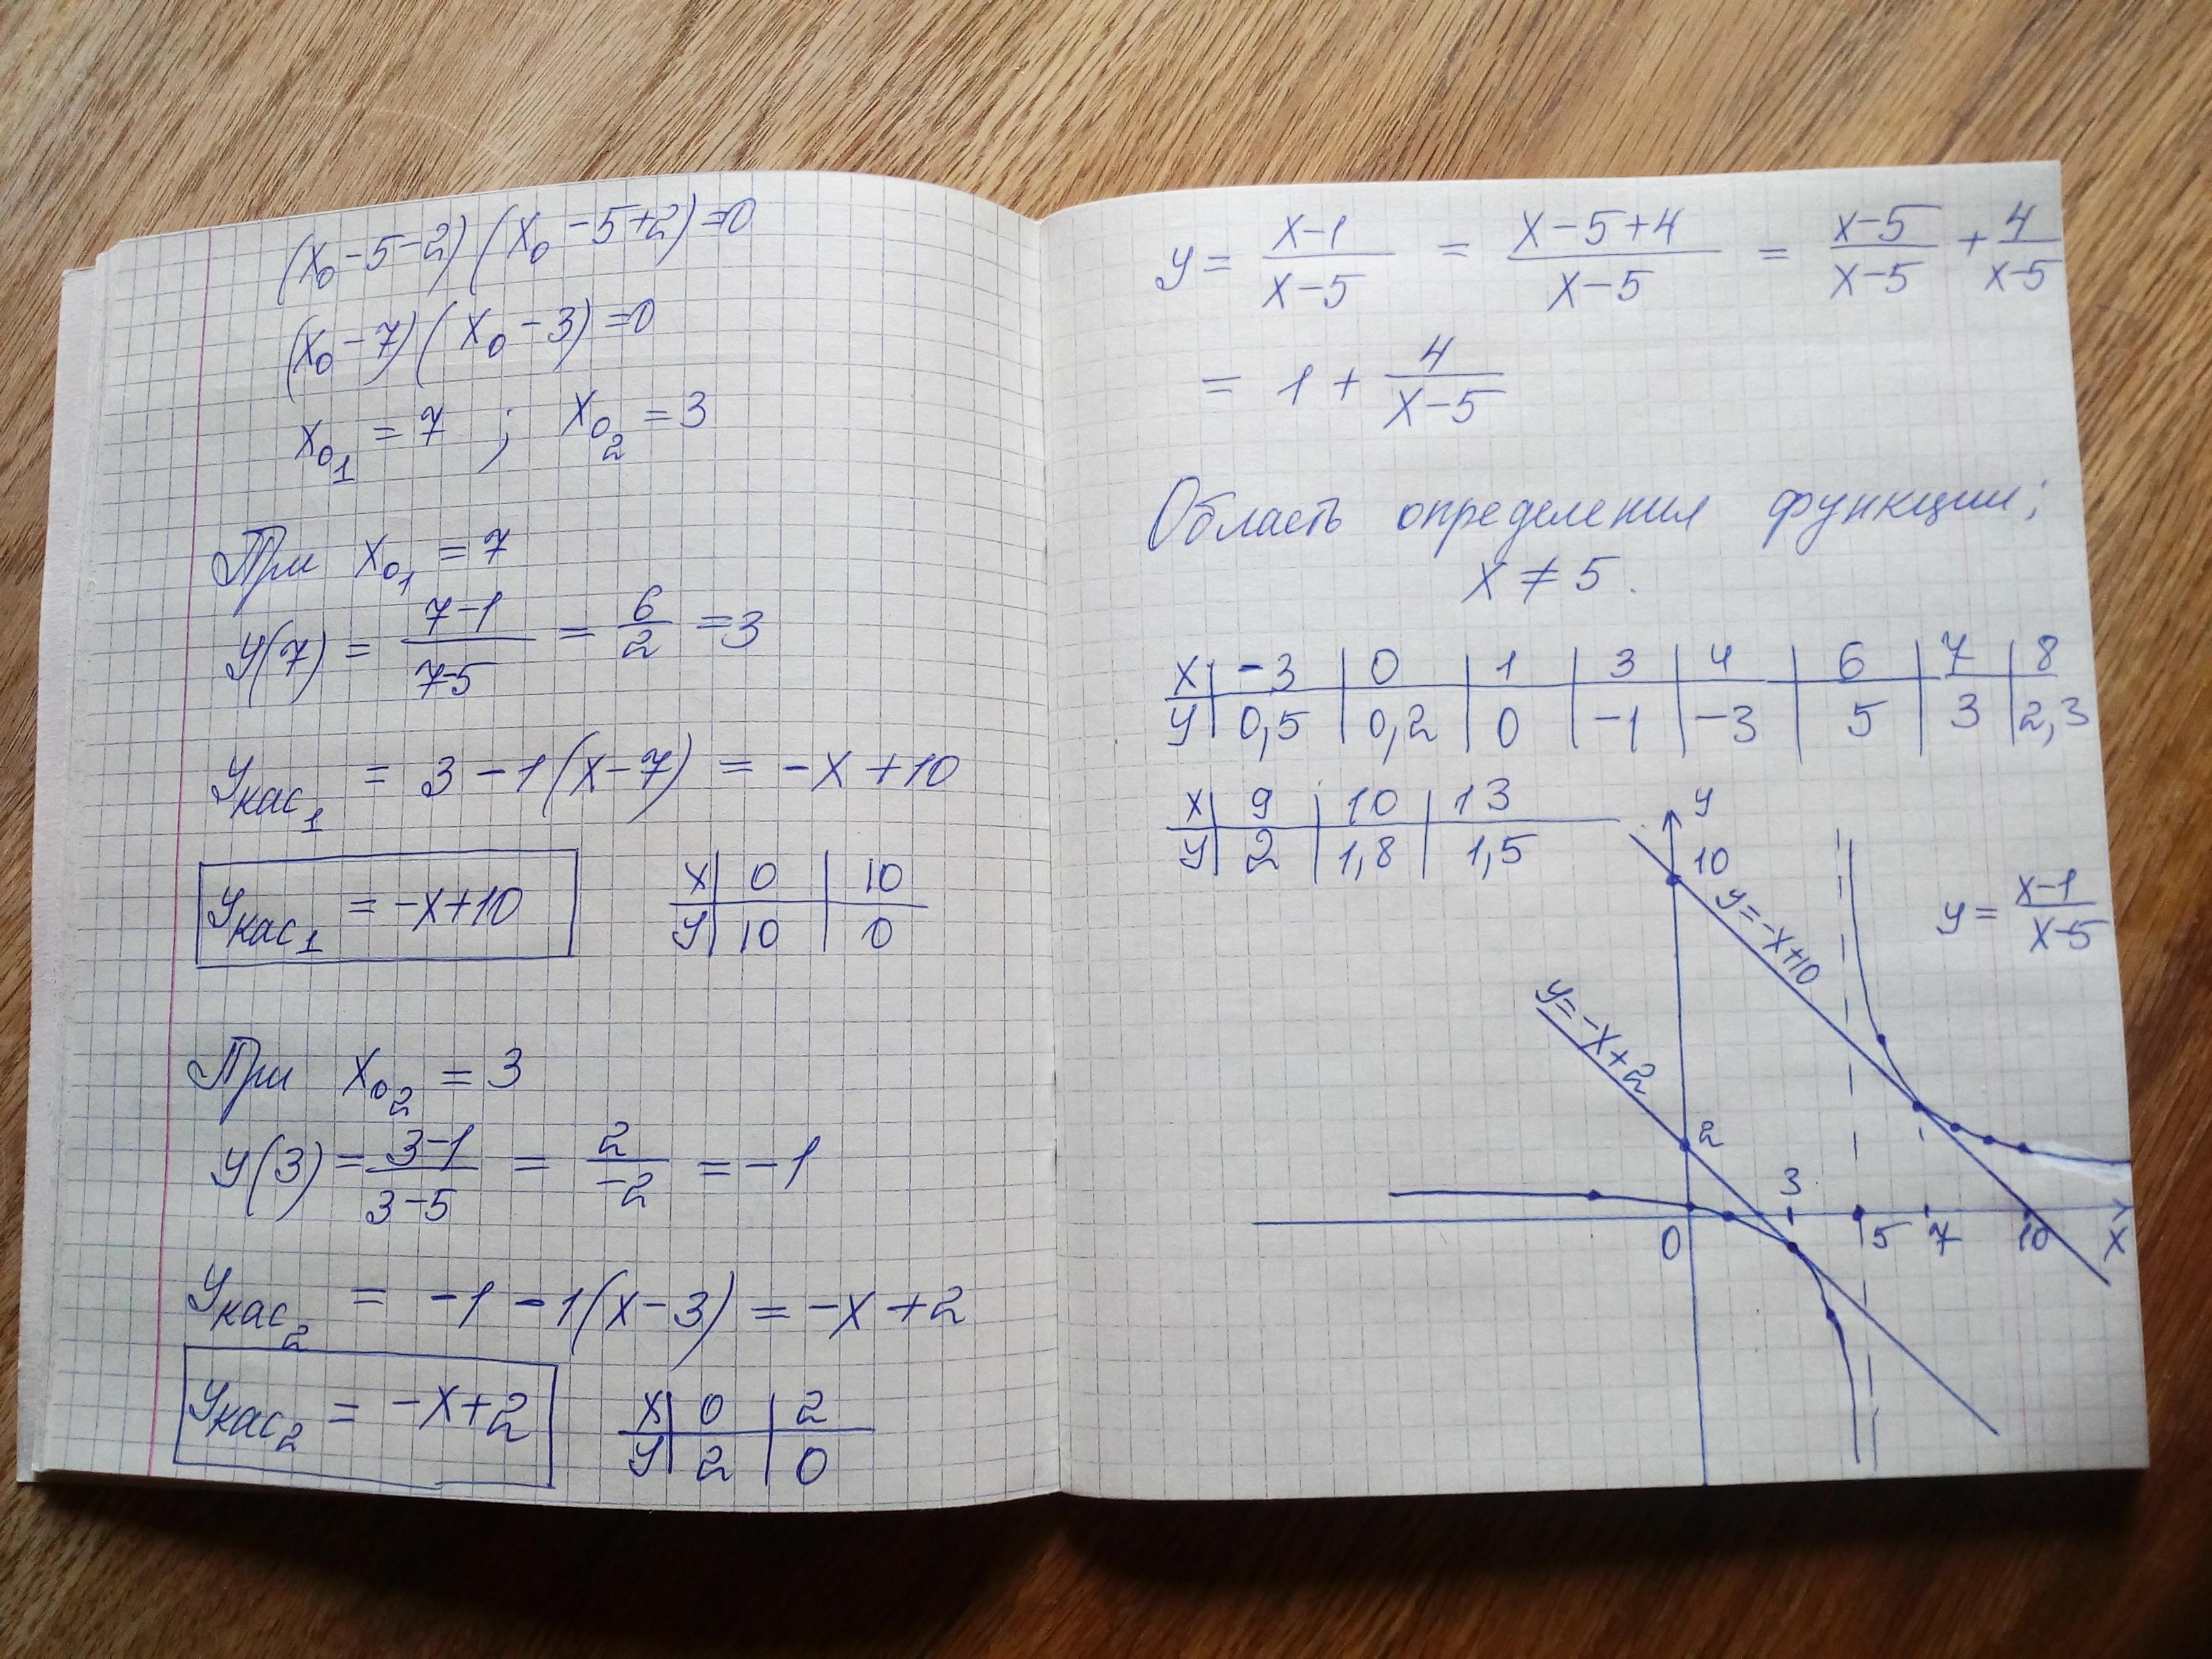 (x₀-5-2)(x₀-5+2)=0
(x₀-7)(x₀-3)=0
x₀₁ = 7 ; x₀₂ = 3
При x₀₁ = 7
y(7) = \frac{7-1}{7-5} = \frac{6}{2} = 3
y_{кас₁} = 3 - 1(x-7) = -x+10
y_{кас₁} = -x+10
x | 0 | 10
y | 10 | 0
При x₀₂ = 3
y(3) = \frac{3-1}{3-5} = \frac{2}{-2} = -1
y_{кас₂} = -1 - 1(x-3) = -x+2
y_{кас₂} = -x+2
x | 0 | 2
y | 2 | 0
y = \frac{x-1}{x-5} = \frac{x-5+4}{x-5} = \frac{x-5}{x-5} + \frac{4}{x-5}
= 1 + \frac{4}{x-5}
Область определения функции;
x ≠ 5.
x | -3 | 0 | 1 | 3 | 4 | 6 | 7 | 8
y | 0,5 | 0,2 | 0 | -1 | -3 | 5 | 3 | 2,3
x | 9 | 10 | 13
y | 2 | 1,8 | 1,5
y
10
y=-x+10
y = \frac{x-1}{x-5}
y=-x+2
2
3
0 5 7 10 x